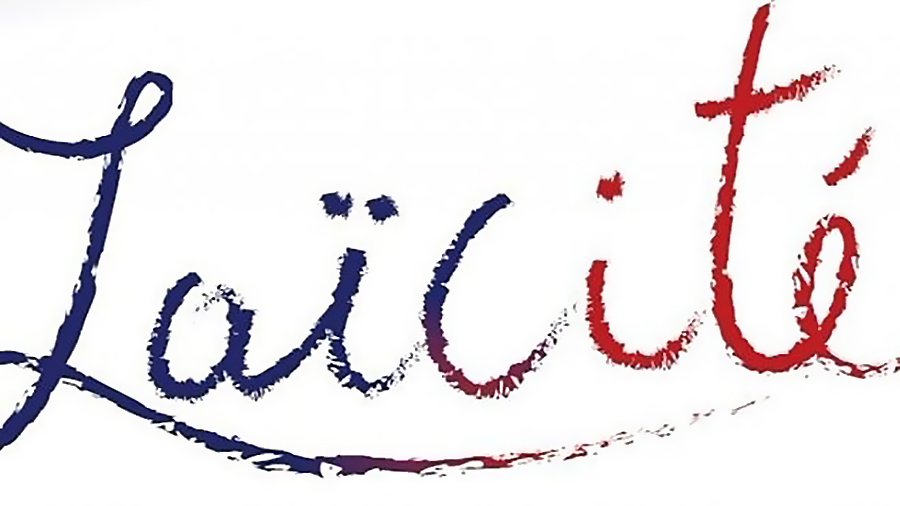 Laïcité